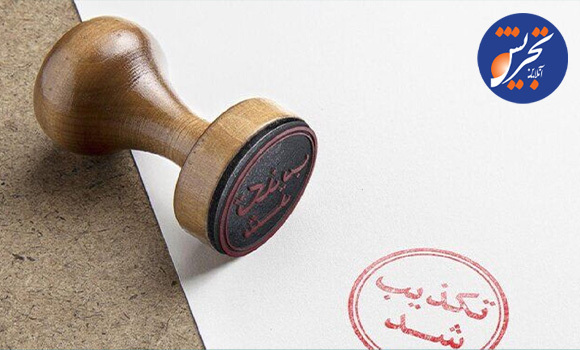 تجریش
آنلاین
تکذیب
شد